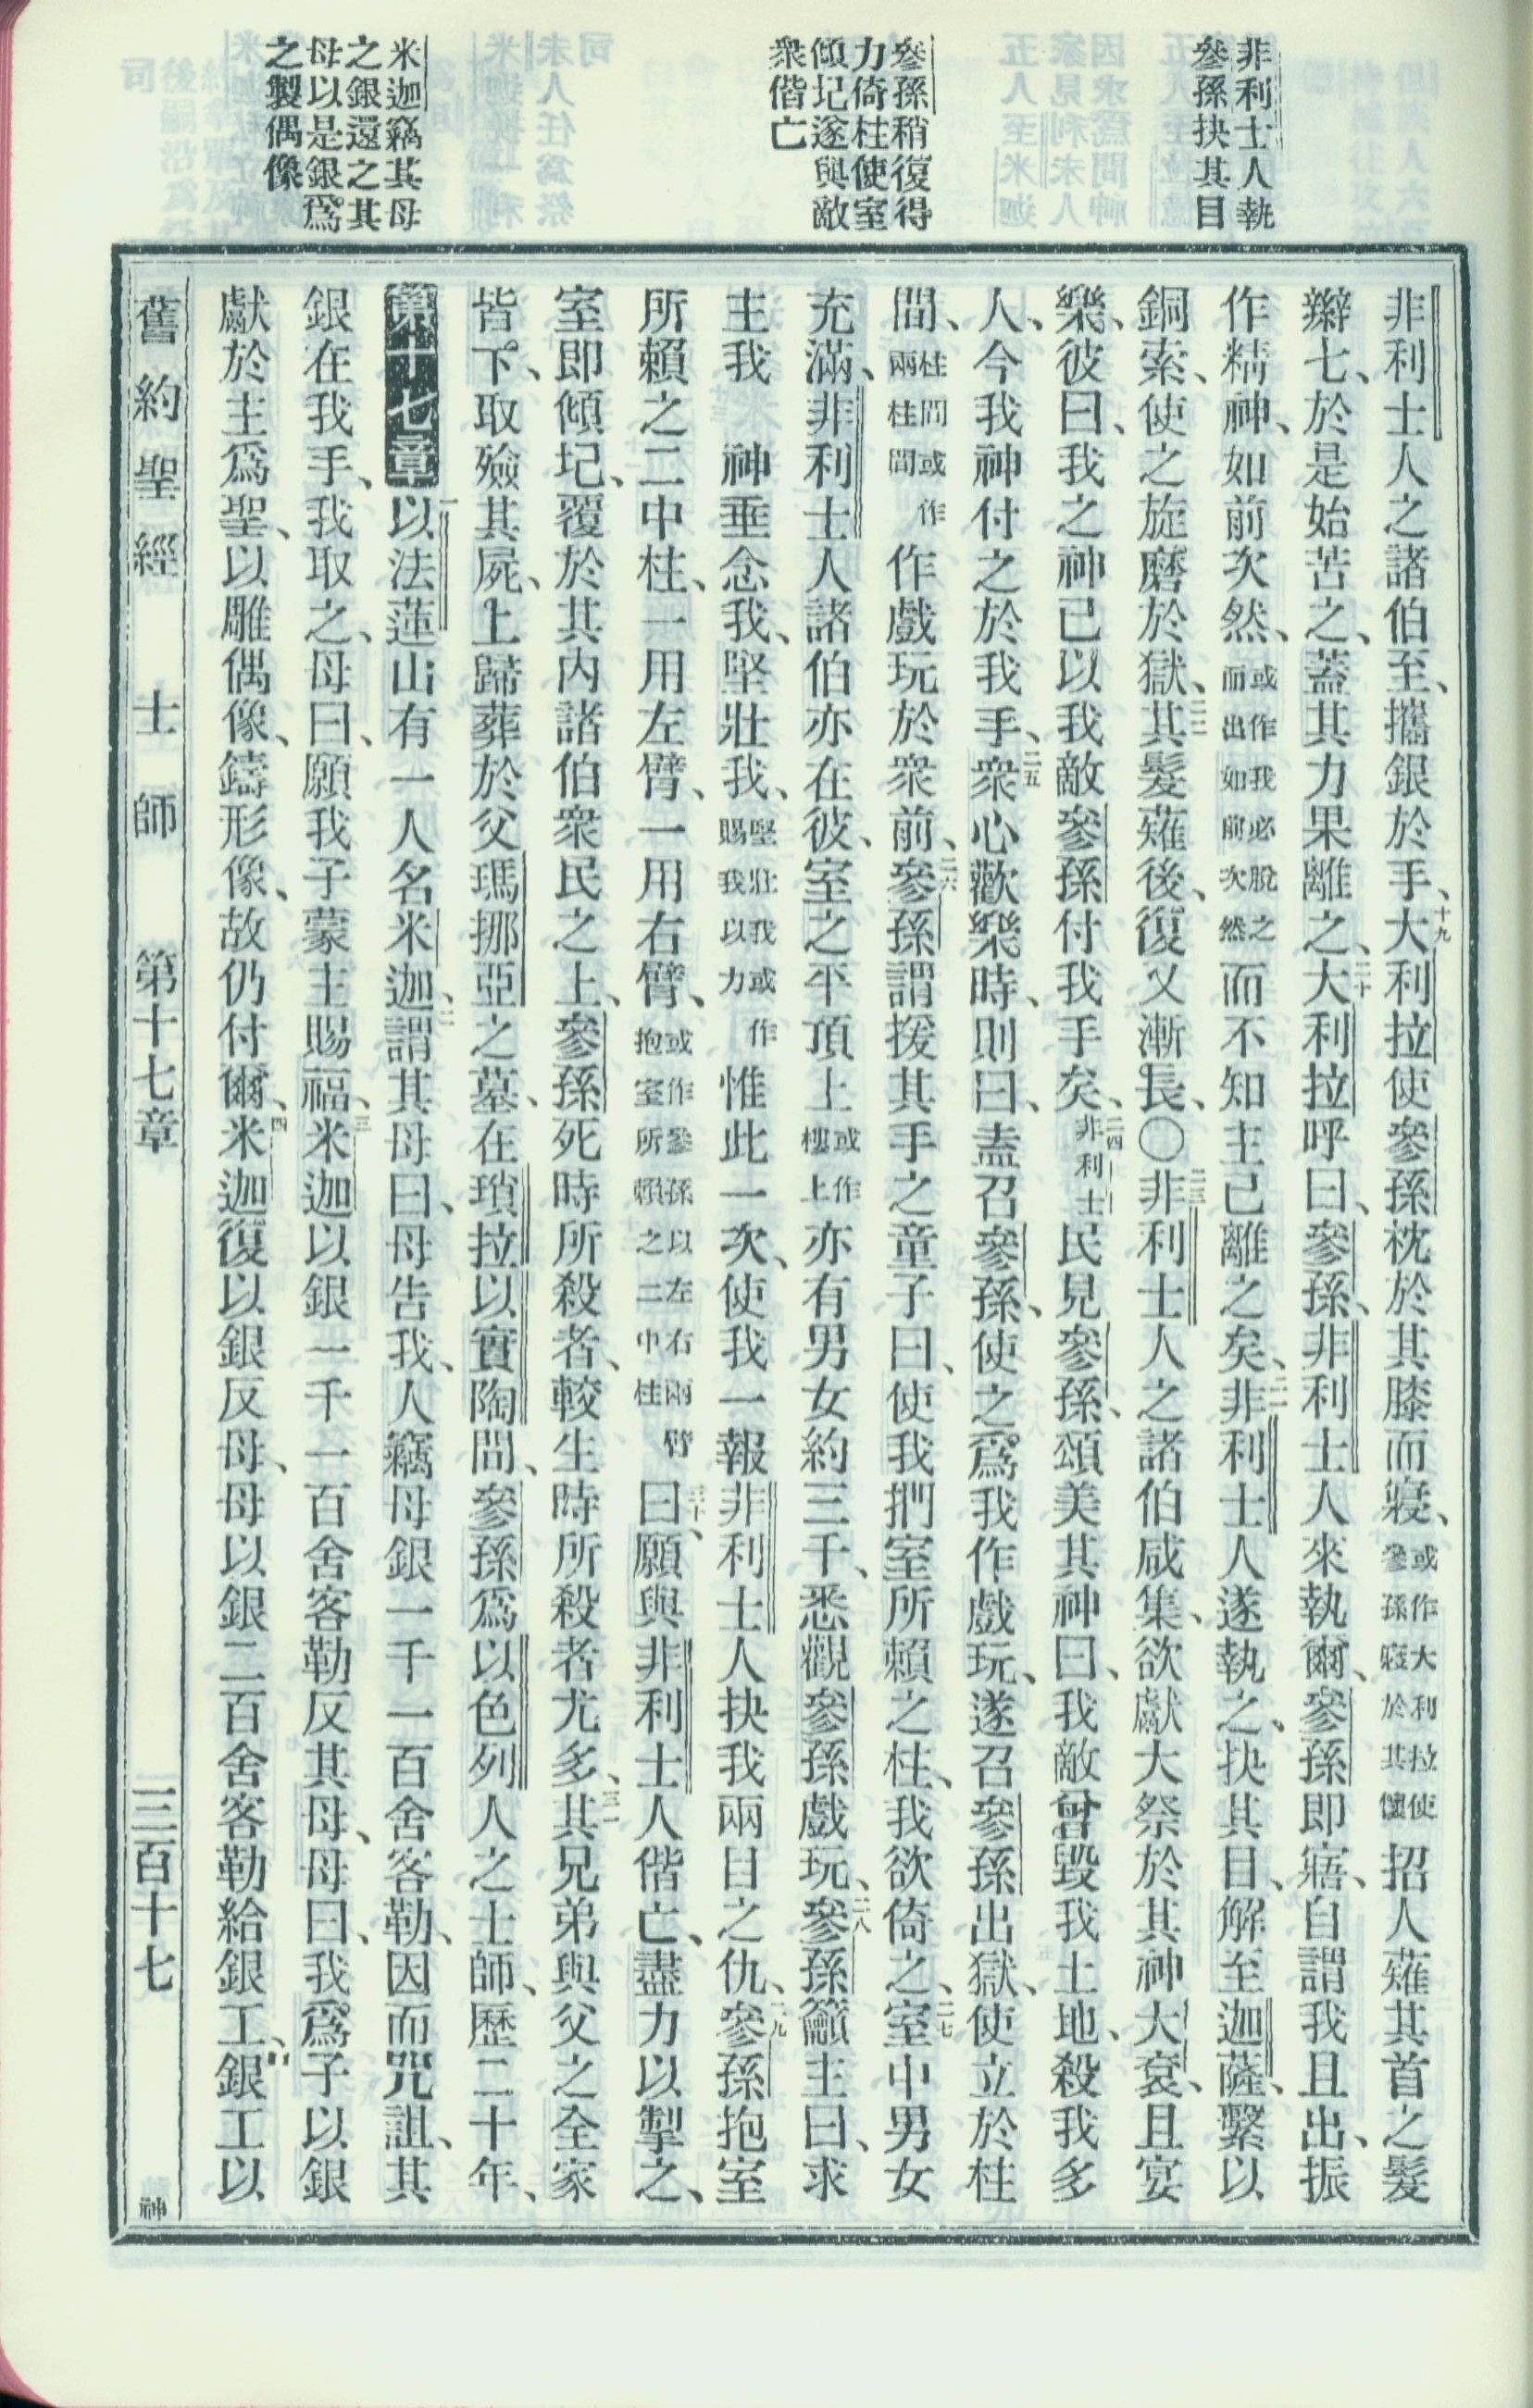 非利士人執
參孫抉其目
參孫稍復得
力倚柱使室
傾圮遂與敵
衆偕亡
米迦竊其母
之銀還之其
母以是銀爲
之製偶像
非利士人之諸伯至、攜銀於手、十九大利拉使參孫枕於其膝而寢、或作大利拉使參孫寢於其懷招人薙其首之髮
辮七、於是始苦之、蓋其力果離之、二十大利拉呼曰、參孫、非利士人來執爾、參孫即寤、自謂我且出、振
作精神、如前次然、或作我必脫之而出如前次然而不知主已離之矣、二一非利士人遂執之、抉其目、解至迦薩、繫以
銅索、使之旋磨於獄、二二其髮薙後、復又漸長、〇二三非利士人之諸伯咸集、欲獻大祭於其神大袞、且宴
樂、彼曰、我之神已以我敵參孫付我手矣、二四非利士民見參孫、頌美其神曰、我敵曾毀我土地、殺我多
人、今我神付之於我手、二五衆心歡樂時、則曰、盍召參孫、使之爲我作戲玩、遂召參孫出獄、使立於柱
間、柱間或作兩柱間作戲玩於衆前、二六參孫謂援其手之童子曰、使我捫室所賴之柱、我欲倚之、二七室中男女
充滿、非利士人諸伯亦在彼、室之平頂上或作樓上亦有男女約三千、悉觀參孫戲玩、二八參孫籲主曰、求
主我　神垂念我、堅壯我、堅壯我或作賜我以力惟此一次、使我一報非利士人抉我兩目之仇、二九參孫抱室
所賴之二中柱、一用左臂、一用右臂、或作參孫以左右兩臂抱室所賴之二中柱三十曰、願與非利士人偕亡、盡力以掣之、
室即傾圮、覆於其內諸伯衆民之上、參孫死時所殺者、較生時所殺者尤多、三一其兄弟與父之全家
皆下、取殮其屍、上歸葬於父瑪挪亞之墓、在瑣拉以實陶間、參孫爲以色列人之士師、歷二十年、
第十七章一以法蓮山有一人名米迦、二謂其母曰、母告我、人竊母銀一千一百舍客勒、因而咒詛、其
銀在我手、我取之、母曰、願我子蒙主賜福、三米迦以銀一千一百舍客勒反其母、母曰、我爲子以銀
獻於主爲聖、以雕偶像、鑄形像、故仍付爾、四米迦復以銀反母、母以銀二百舍客勒給銀工、銀工以
舊約聖經　士師　第十七章　三百十七　神